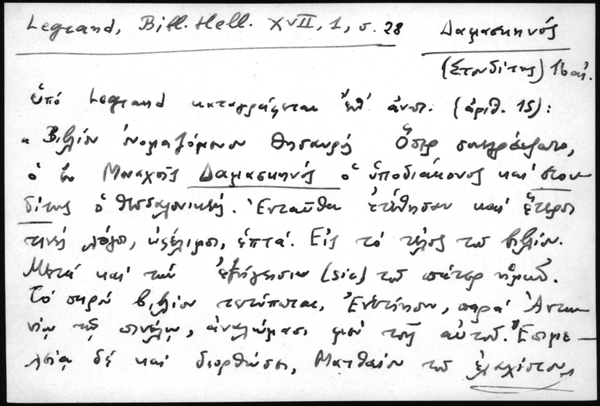 Legrand, Bibl. Hell. XVII, 1, σ. 28
Δαμασκηνός
(Στουδίτης) 16 αἰ.
ὑπό Legrand καταγράφεται ὑπ' ἀριθ. (ἀριθ. 15):
«Βιβλίον ὀνομαζόμενον Θησαυρός Ὅπερ συνεγράψατο,
ὁ ἐν Μοναχοῖς Δαμασκηνός ὁ ὑποδιάκονος καί στου-
δίτης ὁ Θεσσαλονικεύς. Ἐνταῦθα ἐτέθησαν καί ἕτεροι
τινές λόγοι, ὠφέλιμοι, ἑπτά. Εἰς τό τέλος τοῦ βιβλίου.
Μετά καί τήν ἐξήγησιν (sic) τοῦ πάτερ ἡμῶν.
Τό παρόν βιβλίον τετύπωται, Ἐνετίησιν, παρά Ἀντω-
νίῳ τῷ πινέλῳ, ἀναλώμασι μέν τοῖς αὐτοῦ. Ἐπιμε-
λείᾳ δέ καί διορθώσει, Ματθαίου τοῦ ἐλαχίστου»